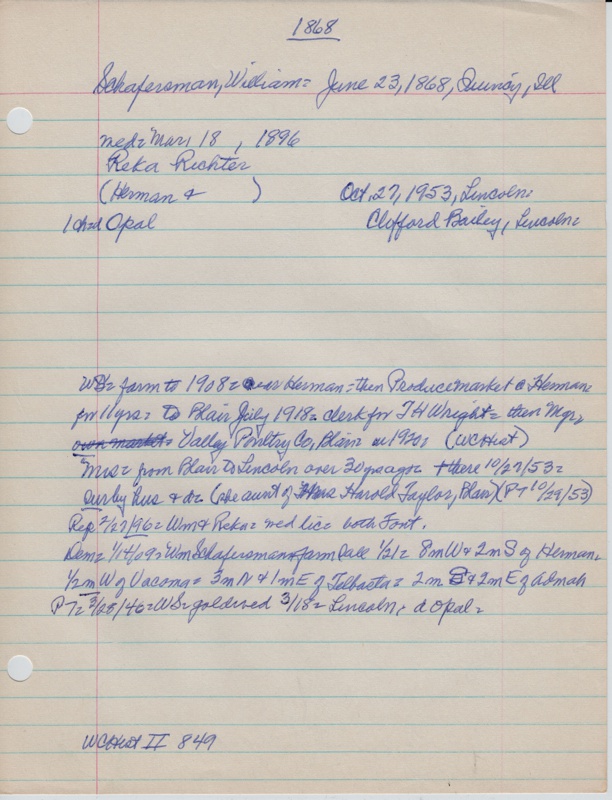 1868
Schafersman, William = June 23, 1868, Quincy, Ill
med = Mar, 18, 1896
Reka Richter
(Herman + ) Oct, 27, 1953, Lincoln =
1 ch = d Opal Clifford Bailey, Lincoln =
WS = farm to 1908 = near Herman = then Produce market @ Herman
for 11 yrs = to Blair July 1918 = clerk for T H Wright = then Mgr,
own market = Valley Poultry Co, Blair = in 1920s (WCHist)
Mrs = from Blair to Lincoln over 30 yrs ago = + there 10/27/53 =
Surby hus + d = (she aunt of Mrs Harold Taylor, Blair) (PT 10/29/53)
Rep = 2/27/96 = Wm + Reka = med lic = both Font.
Dem = 1/14/09 = Wm Schafersman = farm sale 1/21 = 8m W + 2m S of Herman,
1/2 m W of Vacoma = 3m N + 1m E of Telbasta = 2m S + 2m E of Admah
PT = 3/28/46 = WS = gold wed 3/18 = Lincoln, d Opal =
WCHist II 849